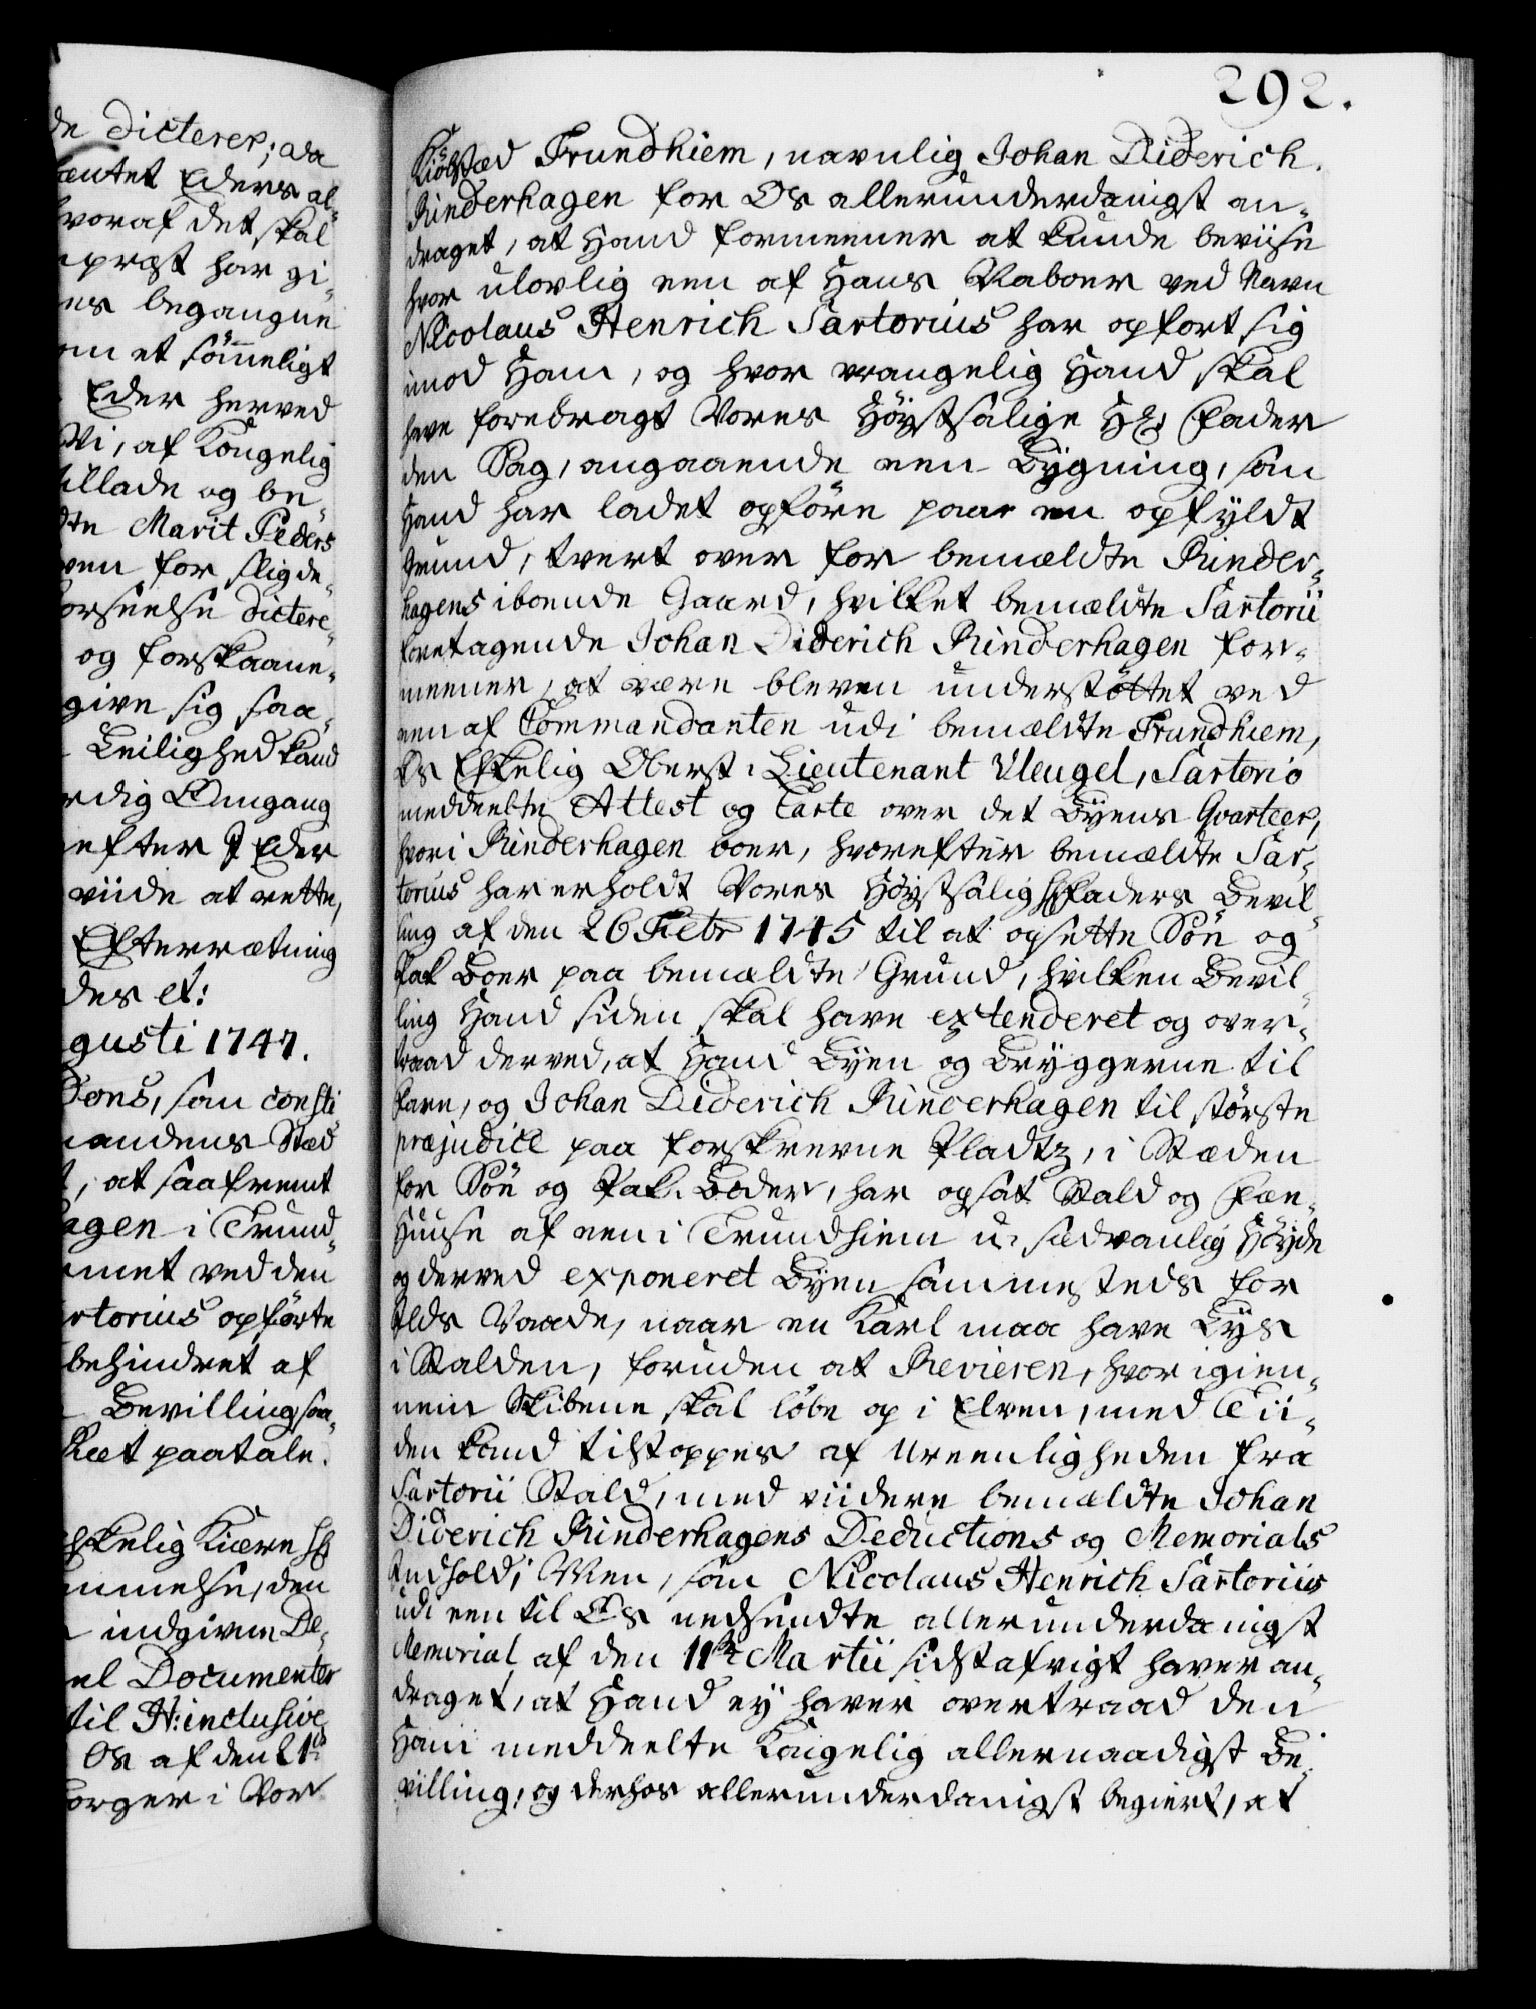 de dicteret; da
hæntet Eders al-
hvoraf det skal
præst har gi-
es begangne
om et sömmeligt
Eder herved
Vi, af Kongelig
tillade og be-
dte Marit Peders
ven for slig de-
orseelse dictere-
og forskaane-
give sig saa-
Leilighed kand
rdig Omgang
efter I Eder
viide at rette,
Efterrætning
des et:
gusti 1747.
Dons, som consti
mandens Stæd
t, at saafremt
agen i Trund-
met ved den
rtorius opförte
behindret af
Bevilling saa-
Ræt paatale.
skelig Kiære H
mmelse, den
indgivne De-
el Documenter
til H: inclusive
Os af den 21de
borger i Vor
292.
Kiöbstæd Trundhiem, navnlig Johan Diderich
Rinderhagen for Os allerunderdanigst an-
draget, at Hand formeener at kunde beviise
hvor ulovlig een af Hans Naboer ved Navn
Nicolaus Henrich Sartorius har opfört sig
imod Ham, og hvor vrangelig Hand skal
have foredragt Vores Höystsalige Hr Fader
den Sag, angaaende een Bygning, som
Hand har ladet opföre paa en opfyldt
Grund, tvert over for bemældte Rinder-
hagens iboende Gaard, hvilket bemældte Sartorii
foretagende Johan Diderich Rinderhagen for-
meener, at være bleven understöttet ved
een af Commandanten udi bemældte Trundhiem,
Os Elskelig Oberst-Lieutenant Vleugel, Sartorio
meddeelte Attest og Carte over det Byens Qvarteer,
hvori Rinderhagen boer, hvorefter bemældte Sar-
torius har erholdt Vores Höystsalig Hr Faders Bevil-
ling af den 26 Febr 1745 til at opsette Söe og
Pak Boer paa bemældte Grund, hvilken Bevil-
ling Hand siden skal have extenderet og over-
traad derved, at Hand Byen og Bryggerne til
fare, og Johan Diderich Rinderhagen til störste
præjudice paa forskrevne Pladtz, i Stæden
for Söe og Pak-Boder, har opsat Stald og Fæe-
Huuse af een i Trundhiem u-sædvanlig Höyde
og derved exponeret Byen sammesteds for
Ilds Vaade, naar en Karl maa have Lys
i Stalden, foruden at Revieren, hvor igien-
nem Skibene skal löbe op i Elven, med Tii-
den kand tilstoppes af Ureenligheden fra
Sartorii Stald, med viidere bemældte Johan
Diderich Rinderhagens Deductions og Memorials
Indhold; Men, som Nicolaus Henrich Sartorius
udi een til Os nedsendte allerunderdanigst
Memorial af den 11te Martii sidst afvigt haver an-
draget, at Hand ey haver overtraad den
Ham meddeelte Kongelig allernaadigst Be-
villing, og derhos allerunderdanigst begiert, at